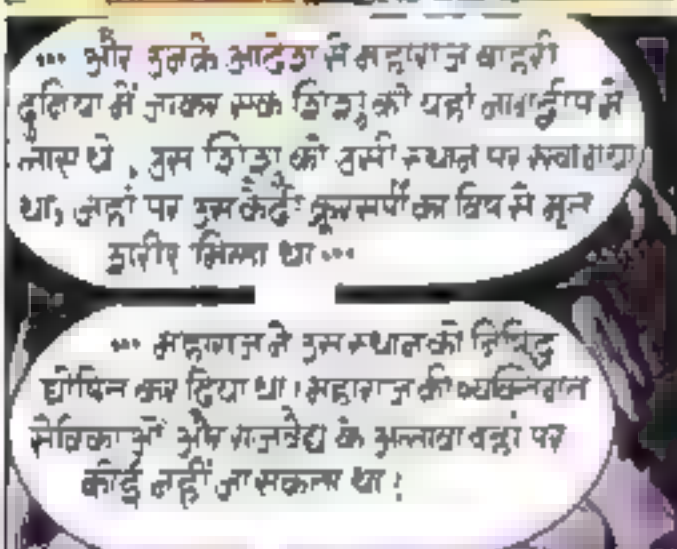 ... और उनके आदेश से महाराज बाहरी
दुनिया में जाकर एक शिशु को यहां नागद्वीप में
लाए थे, उस शिशु को उसी स्थान पर रखा गया
था, जहां पर उस कैदी क्रूरसर्पी का विष से मृत
शरीर मिला था ...
... महाराज ने उस स्थान को निषिद्ध
घोषित कर दिया था। महाराज की व्यक्तिगत
सेविकाओं और राजवैद्य के अलावा वहां पर
कोई नहीं जा सकता था!